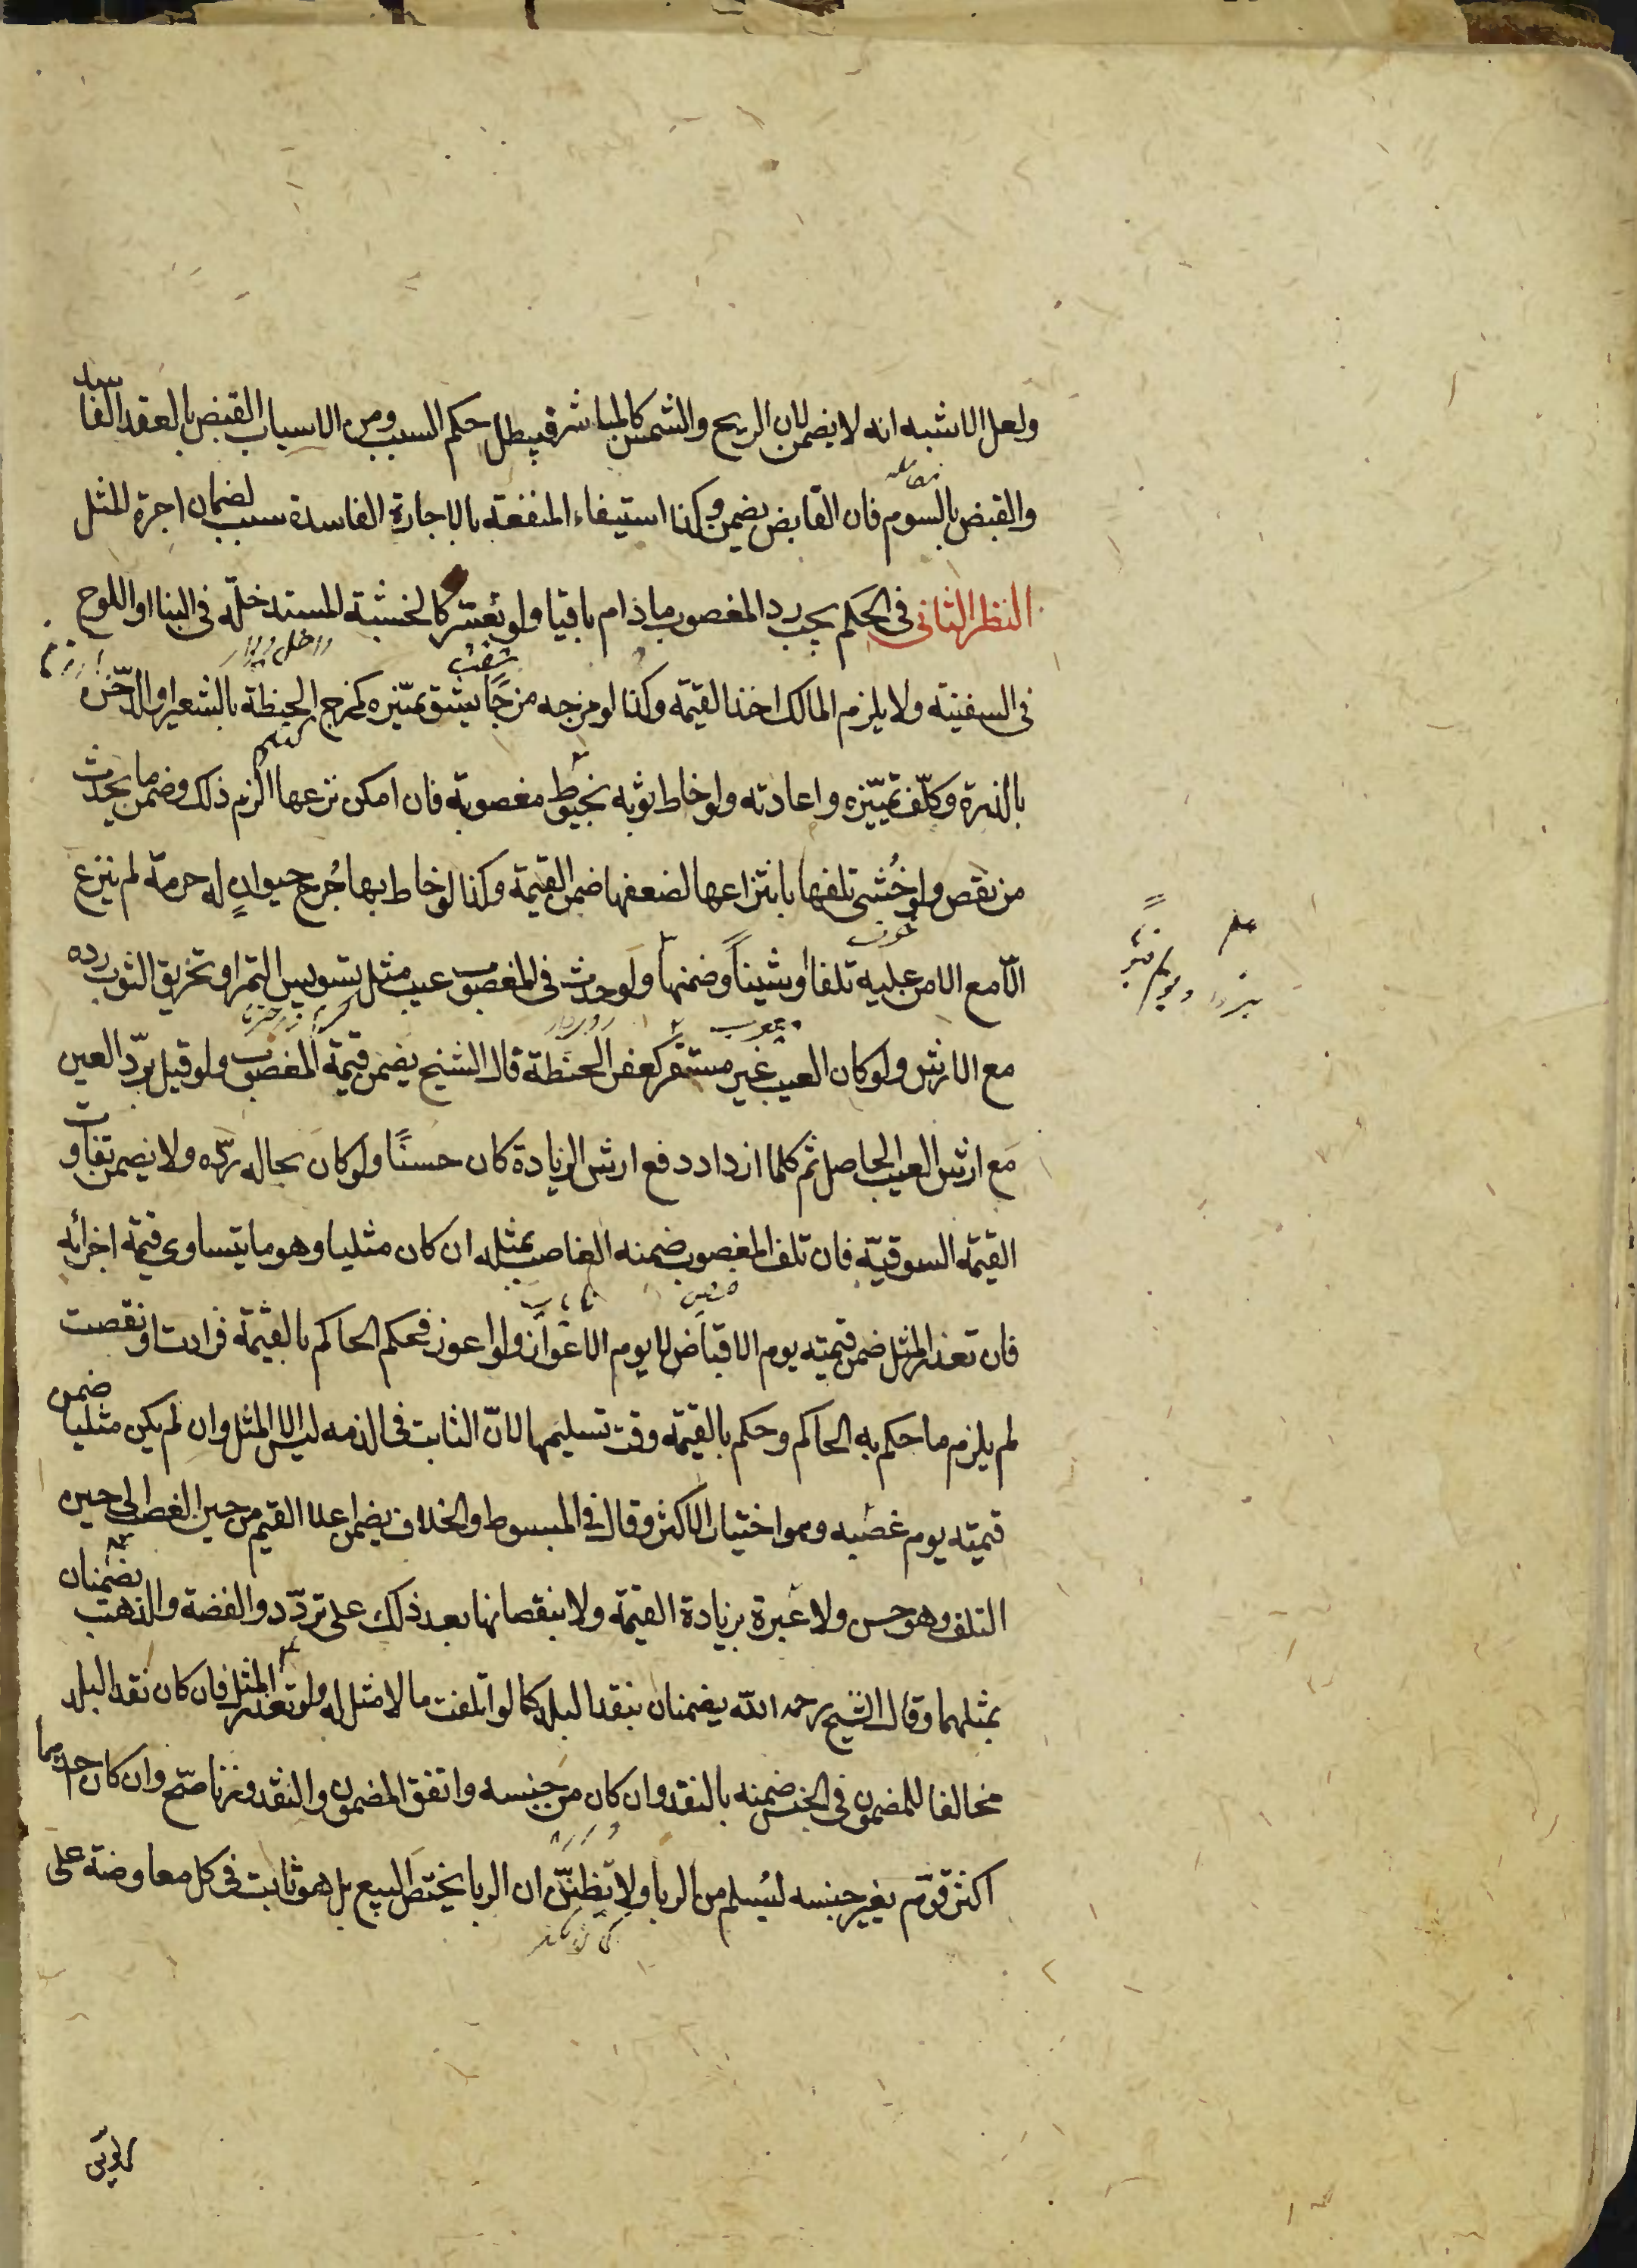 ولعل الاشبه انه لا يضمن لان الريح والشمس كالمباشر فيبطل حكم السبب ومن الاسباب القبض بالعقد الفاسد
والقبض بالسوم فان القابض يضمن وكذا استيفاء المنفعة بالاجارة الفاسدة سبب لضمان اجرة المثل
النظر الثانى فى الحكم يجب رد المغصوب ما دام باقيا ولو تعسّر كالخشبة المستدخلة فى البنا او اللوح
فى السفينة ولا يلزم المالك اخذ القيمة وكذا لو مزجه مزجًا يشق تميّزه كمزج الحنطة بالشعير او الدّخن
بالذرة وكلّف تميّزه واعادته ولو خاط ثوبه بخيوط مغصوبة فان امكن نزعها الزم ذلك وضمن ما يحدث
من نقص ولو خُشى تلفها بانتزاعها لضعفها ضمن القيمة وكذا لو خاط بها جُرح حيوانٍ له حرمة لم ينزع
الّا مع الامن عليه تلفا او شيناً وضمنها ولو حدث فى المغصوب عيب مثل تسويس التمر او تخريق الثوب رده
مع الارش ولو كان العيب غير مستقر كعفن الحنطة قال الشيخ يضمن قيمة المغصوب ولو قيل بردّ العين
مع ارش العيب الحاصل ثم كلما ازداد دفع ارش الزيادة كان حسنًا ولو كان بحاله ردّه ولا يضمن تفاوت
القيمة السوقيّة فان تلف المغصوب ضمنه الغاصب بمثله ان كان مثليا وهو ما يتساوى قيمة اجزائه
فان تعذر المثل ضمن قيمته يوم الاقباض لا يوم الاعواز ولو اعوز فحكم الحاكم بالقيمة فزادت او نقصت
لم يلزم ما حكم به الحاكم وحكم بالقيمة وقت تسليمها لانّ الثابت فى الذمه ليس الا المثل وان لم يكن مثليا ضمن
قيمته يوم غصبه وهو اختيار الاكثر وقال فى المبسوط والخلاف يضمن اعلا القيم من حين الغصب الى حين
التلف وهو حسن ولا عبرة بزيادة القيمة ولا بنقصانها بعد ذلك على تردّد والفضة والذهب يضمنان
بمثلهما وقال الشيخ رحمه الله يضمنان بنقد البلد كما لو اتلفت ما لا مثل له ولو تعذر المثل فان كان نقد البلد
مخالفا للمضمون فى الجنس ضمنه بالنقد وان كان من جنسه واتفق المضمون والنقد وزنا صّح وان كان احدهما
اكثر قوّم بغير جنسه ليُسلم من الربا ولا تظنّن ان الربا يختص البيع بل هو ثابت فى كل معاوضة على